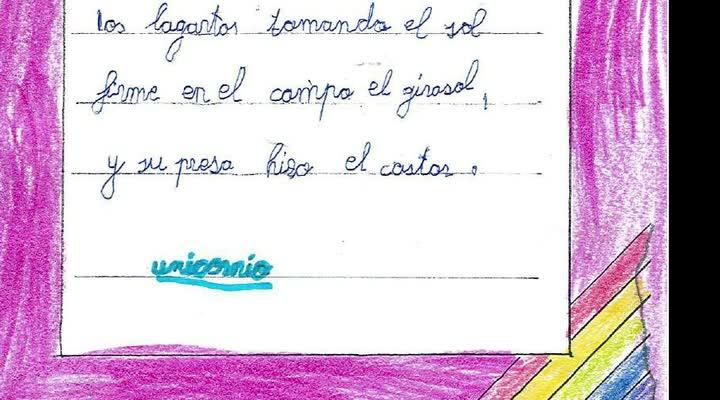 los lagartos tomando el sol
firme en el campo el girasol,
y su presa hizo el castor.
unicornio